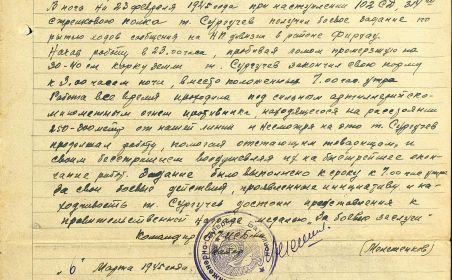 В ночь на 23 февраля 1945 года при наступлении 102 СД,
стрелкового полка т. Сургучев получил боевое задание по
рытью ходов сообщения на НП дивизии в районе Фирхау.
Начав работу в 23.00 часа, пробивая ломом промерзшую на
30-40 см корку земли т. Сургучев закончил свою норму
к 3.00 часам ночи, вместо положенных 7.00 час. утра
Работа все время проходила под сильным артиллерийско-
минометным огнем противника, находящегося на расстоянии
250-300 метр от нашей линии и несмотря на это т. Сургучев
продолжал работу, помогая отстающим товарищам, и
своим бесстрашием воодушевляя их на быстрейшее окон-
чание работ. Задание было выполнено к сроку к 7.00 час утра
За свои боевые действия, проявленные инициативу и на-
ходчивость т. Сургучев достоин представления к
правительственной награде медалью "За боевые заслуги"
Командир
майор
"6" Марта 1945 года.